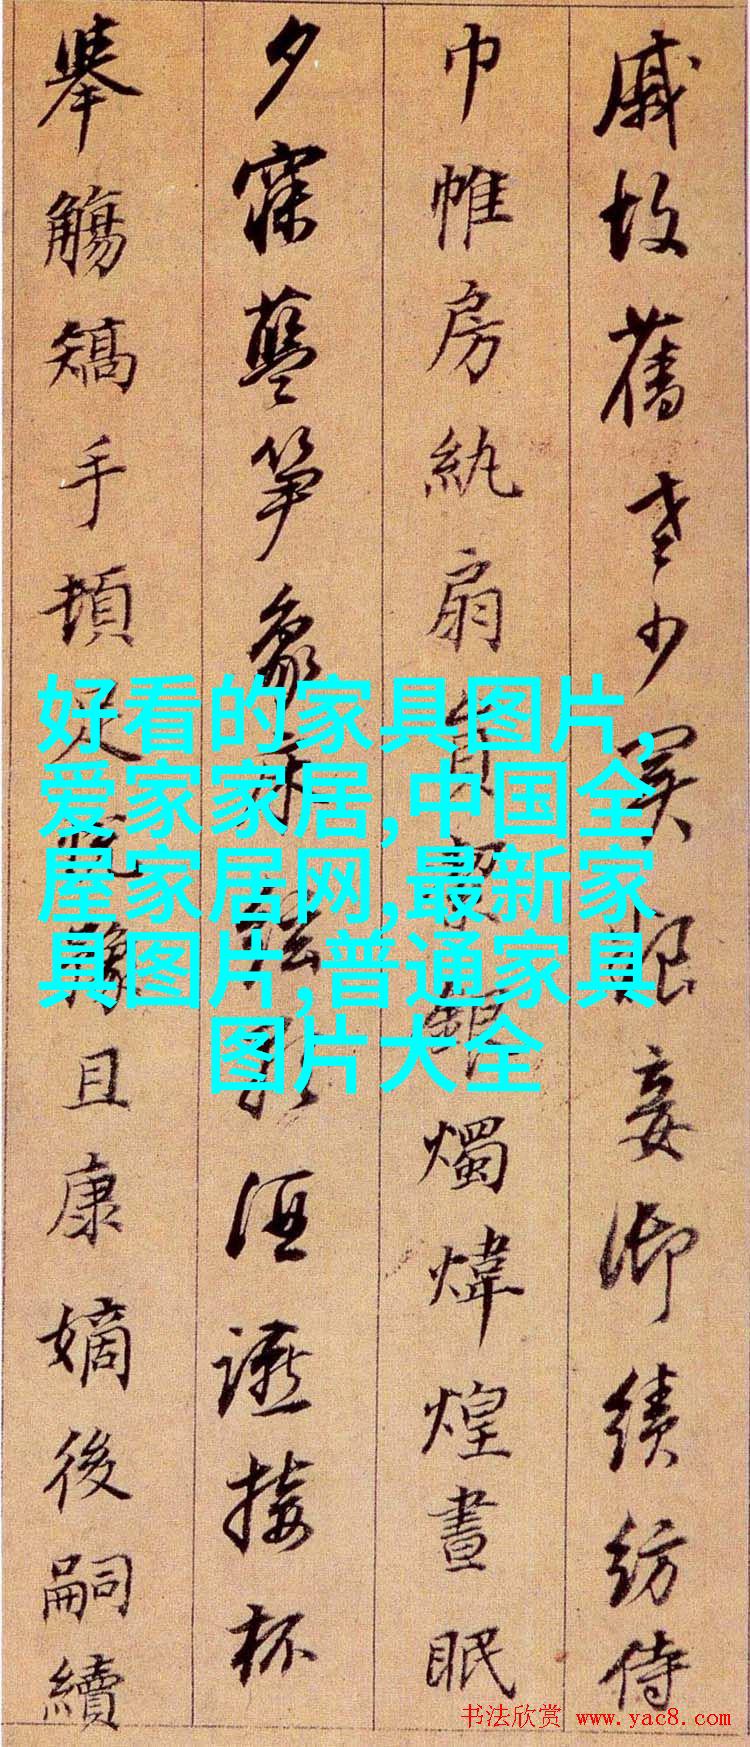 戚故舊老少異糧妾御績紡侍
巾帷房紈扇員潔銀燭煒煌晝眠
夕寐藍筍象床弦歌酒讌接杯
舉觴矯手頓足悅豫且康嫡後嗣續
好看的家具图片,
爱家家居,中国全
屋家居网,最新家
具图片,普通家具
图片大全
书法欣赏 www.yac8.com